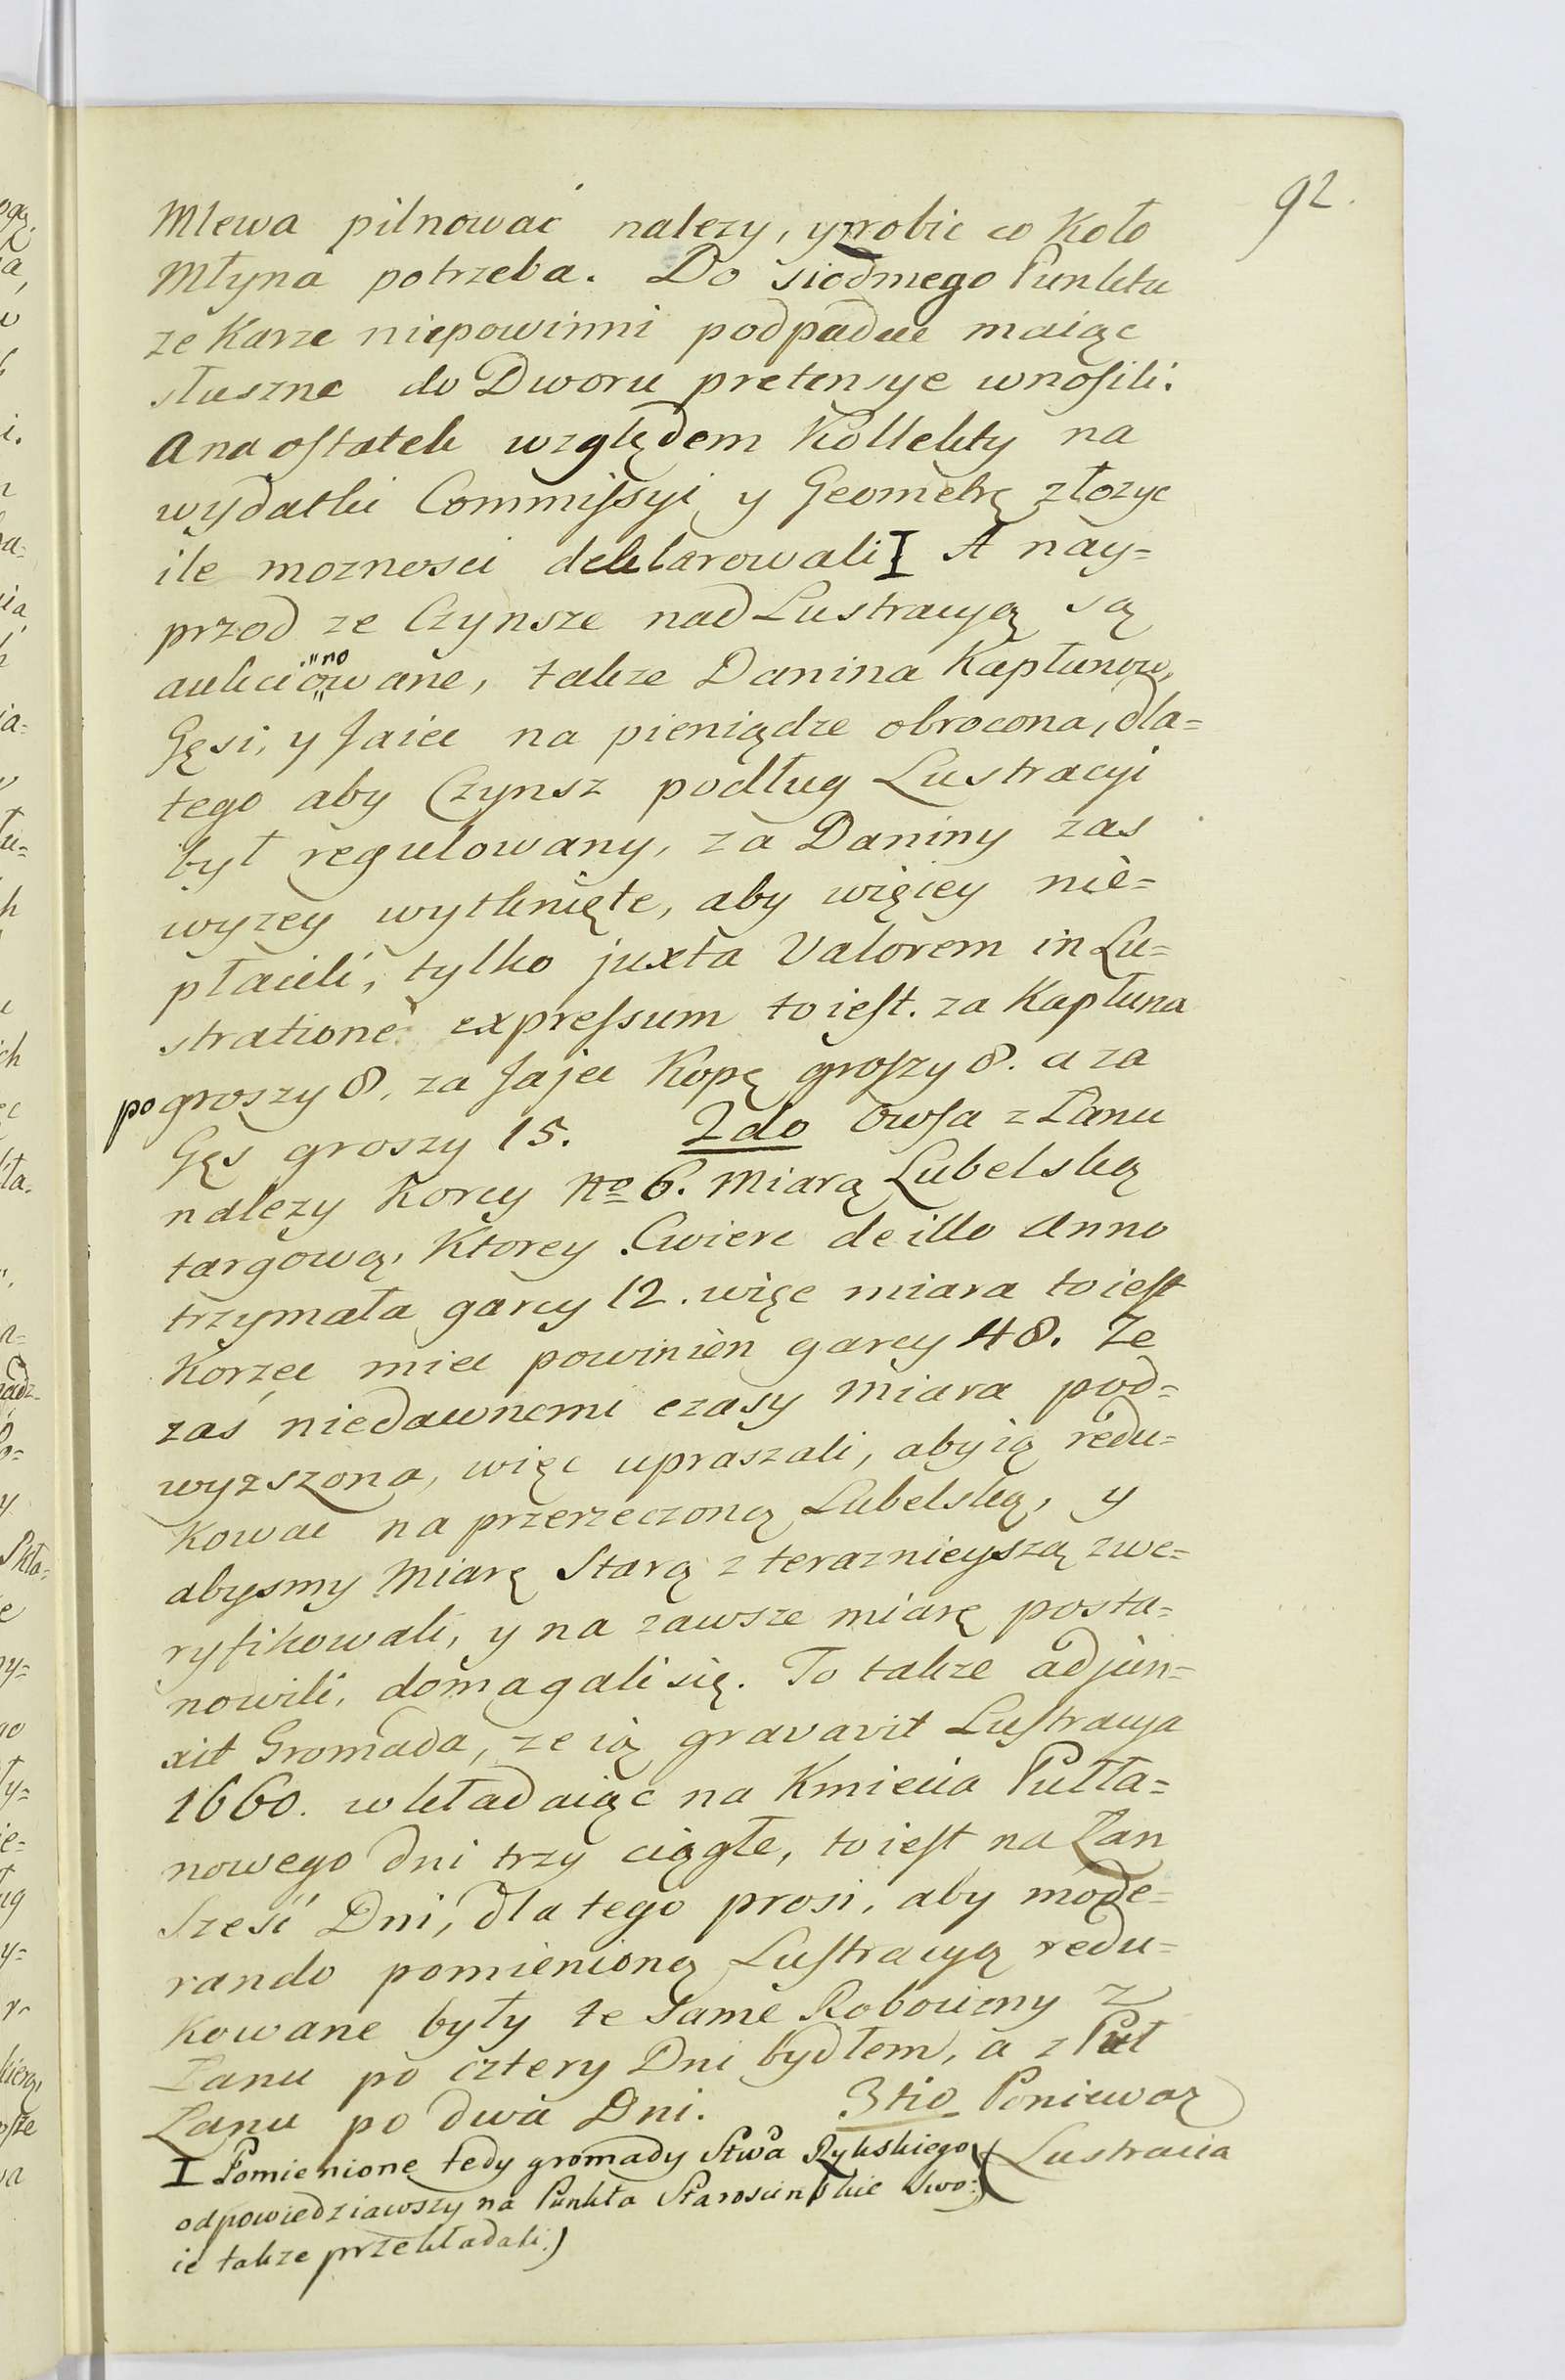 92.
Mlewa pilnować nalezy, y robic co Koło
Młyna potrzeba. Do siodmego Punktu
ze Karze niepowinni podpadac maiąc
słuszne do Dworu pretensye wnosili.
A na ostatek względem Kollekty na
wydatki Commissyi y Geometrę złozyc
ile moznosci deklarowali I A nay=
przod ze Czynsze nad Lustracyą są
aukcionowane, takze Danina Kapłunow,
Gęsi, y Jaiec na pieniądze obrocona, dla=
tego aby Czynsz podług Lustracyi
był regulowany, za Daniny zas
wyzey wytknięte, aby więcey nie=
płacili, tylko juxta Valorem in Lu=
stratione expressum to iest. za Kapłuna
po groszy 8. za Jajec Kopę groszy 8. a za
Gęs groszy 15. 2do Owsa z Łanu
nalezy Korcy No 6. Miarą Lubelską
targową, Ktorey Cwierc de illo Anno
trzymała garcy 12. więc miara to iest
Korzec miec powinien garcy 48. Ze
zaś niedawnemi czasy miara pod=
wyzszona, więc upraszali, aby ią redu=
kowac na przerzeczoną Lubelską, y
abysmy Miarę Starą z teraznieyszą zwe=
ryfikowali, y na zawsze miarę posta=
nowili, domagali się. To takze adjun=
xit Gromada, ze ią gravavit Lustracya
1660. wkładaiąc na Kmiecia Pułła=
nowego dni trzy ciągłe, to iest na Łan
Sześć Dni, dla tego prosi, aby mode=
rando pomienioną Lustracyą redu=
kowane były te same Robocizny z
Łanu po cztery Dni bydłem, a z Puł
Łanu po dwa Dni. 3tio Poniewaz
Lustracia
I Pomienione tedy gromady Stwa Rykskiego
odpowiedziawszy na Punkta Starościnskie swo:
ie takze przekładali.)